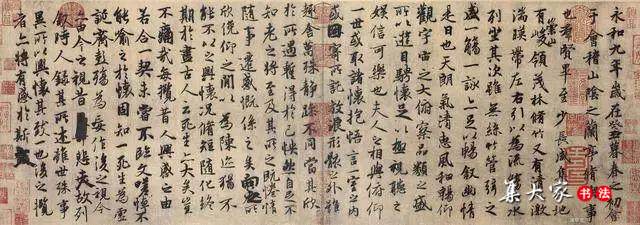 永和九年歲在癸丑暮春之初會
于會稽山陰之蘭亭脩稧事
也羣賢畢至少長咸集此地
有崇山峻領茂林脩竹又有清流激
湍暎帶左右引以為流觴曲水
列坐其次雖無絲竹管弦之
盛一觴一詠亦足以暢敘幽情
是日也天朗氣清惠風和暢仰
觀宇宙之大俯察品類之盛
所以遊目騁懷足以極視聽之
娛信可樂也夫人之相與俯仰
一世或取諸懷抱悟言一室之內
或因寄所託放浪形骸之外雖
趣舍萬殊靜躁不同當其欣
於所遇暫得於己怏然自足不
知老之將至及其所之既惓情
隨事遷感慨係之矣向之所
欣俛仰之閒以為陳迹猶不
能不以之興懷況脩短隨化終
期於盡古人云死生亦大矣豈
不痛哉每攬昔人興感之由
若合一契未嘗不臨文嗟悼不
能喻之於懷固知一死生為虛
誕齊彭殤為妄作後之視今
亦由今之視昔悲夫故列
敘時人錄其所述雖世殊事
異所以興懷其致一也後之攬
者亦將有感於斯文
集大家书法